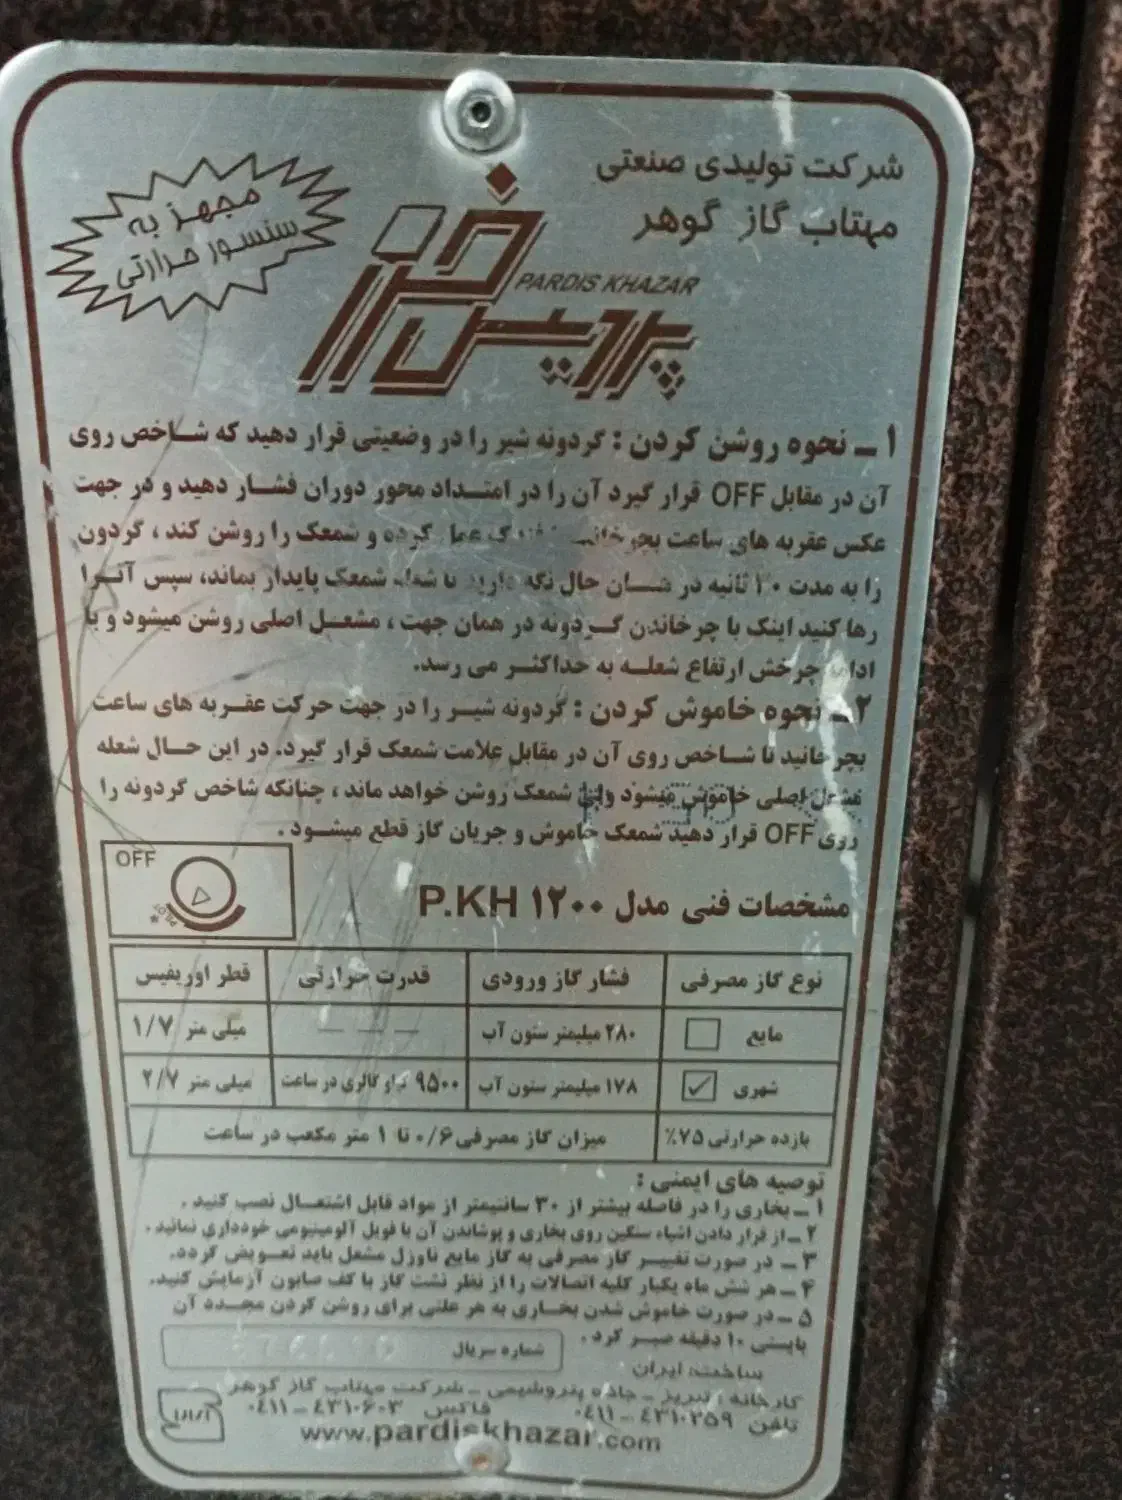 شرکت تولیدی صنعتی
مهتاب گاز گوهر
مجهز به
سنسور حرارتی
PARDIS KHAZAR
پردیس خزر
۱ ـ نحوه روشن کردن : گردونه شیر را در وضعیتی قرار دهید که شاخص روی
آن در مقابل OFF قرار گیرد آن را در امتداد محور دوران فشار دهید و در جهت
عکس عقربه های ساعت بچرخانید فندک عمل کرده و شمعک را روشن کند ، گردون
را به مدت ۲۰ ثانیه در همان حال نگه دارید تا شعله شمعک پایدار بماند، سپس آنرا
رها کنید اینک با چرخاندن گردونه در همان جهت ، مشعل اصلی روشن میشود و با
ادامه چرخش ارتفاع شعله به حداکثر می رسد.
۲ـ نحوه خاموش کردن : گردونه شیر را در جهت حرکت عقربه های ساعت
بچرخانید تا شاخص روی آن در مقابل علامت شمعک قرار گیرد. در این حال شعله
مشعل اصلی خاموش میشود ولی شمعک روشن خواهد ماند ، چنانکه شاخص گردونه را
روی OFF قرار دهید شمعک خاموش و جریان گاز قطع میشود .
OFF
مشخصات فنی مدل P.KH ۱۲۰۰
نوع گاز مصرفی فشار گاز ورودی قدرت حرارتی قطر اوریفیس
مایع ۲۸۰ میلیمتر ستون آب ـ ـ ـ ۱/۷ میلی متر
شهری ✓ ۱۷۸ میلیمتر ستون آب ۹۵۰۰ کیلو کالری در ساعت ۲/۷ میلی متر
بازده حرارتی ۷۵٪ میزان گاز مصرفی ۰/۶ تا ۱ متر مکعب در ساعت
توصیه های ایمنی :
۱ ـ بخاری را در فاصله بیشتر از ۳۰ سانتیمتر از مواد قابل اشتعال نصب کنید .
۲ ـ از قرار دادن اشیاء سنگین روی بخاری و پوشاندن آن با فویل آلومینومی خودداری نمائید .
۳ ـ در صورت تغییر گاز مصرفی به گاز مایع ناوزل مشعل باید تعویض گردد.
۴ ـ هر شش ماه یکبار کلیه اتصالات را از نظر نشت گاز با کف صابون آزمایش کنید.
۵ ـ در صورت خاموش شدن بخاری به هر علتی برای روشن کردن مجدد آن
بایستی ۱۰ دقیقه صبر کرد .
شماره سریال
ساخت ایران
کارخانه : تبریز ـ جاده پتروشیمی ـ شرکت مهتاب گاز گوهر
تلفن ۴۳۱۰۲۵۹ ـ ۰۴۱۱ فاکس ۴۳۱۰۶۰۳ ـ ۰۴۱۱
www.pardiskhazar.com